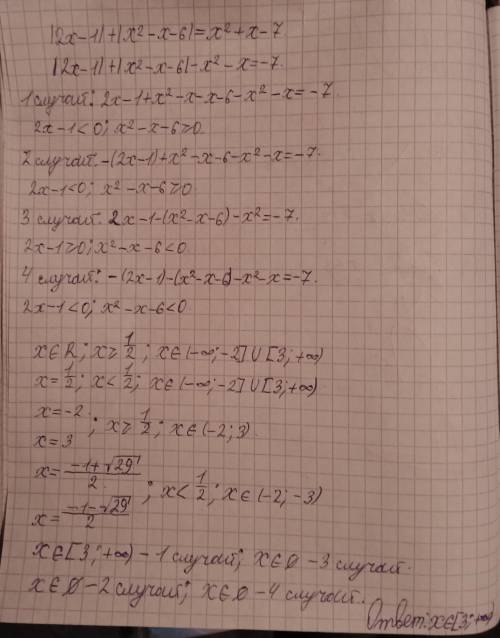 |2x-1|+|x²-x-6|=x²+x-7
|2x-1|+|x²-x-6|-x²-x=-7.
1 случай: 2x-1+x²-x-x-6-x²-x=-7.
2x-1<0; x²-x-6≥0.
2 случай. -(2x-1)+x²-x-6-x²-x=-7.
2x-1<0; x²-x-6≥0.
3 случай. 2x-1-(x²-x-6)-x²=-7.
2x-1≥0; x²-x-6<0.
4 случай: -(2x-1)-(x²-x-6)-x²-x=-7.
2x-1<0; x²-x-6<0.
x∈R; x≥1/2; x∈(-∞;-2]∪[3;+∞)
x=1/2; x<1/2; x∈(-∞;-2]∪[3;+∞)
x=-2
x=3 ; x≥1/2; x∈(-2;3).
x=(-1+√29)/2
; x<1/2; x∈(-2;-3)
x=(-1-√29)/2
x∈[3;+∞) - 1 случай; x∈∅ - 3 случай.
x∈∅ - 2 случай; x∈∅ - 4 случай.
Ответ: x∈[3;+∞)